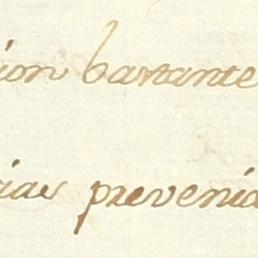 ion bastante
rias prevenid